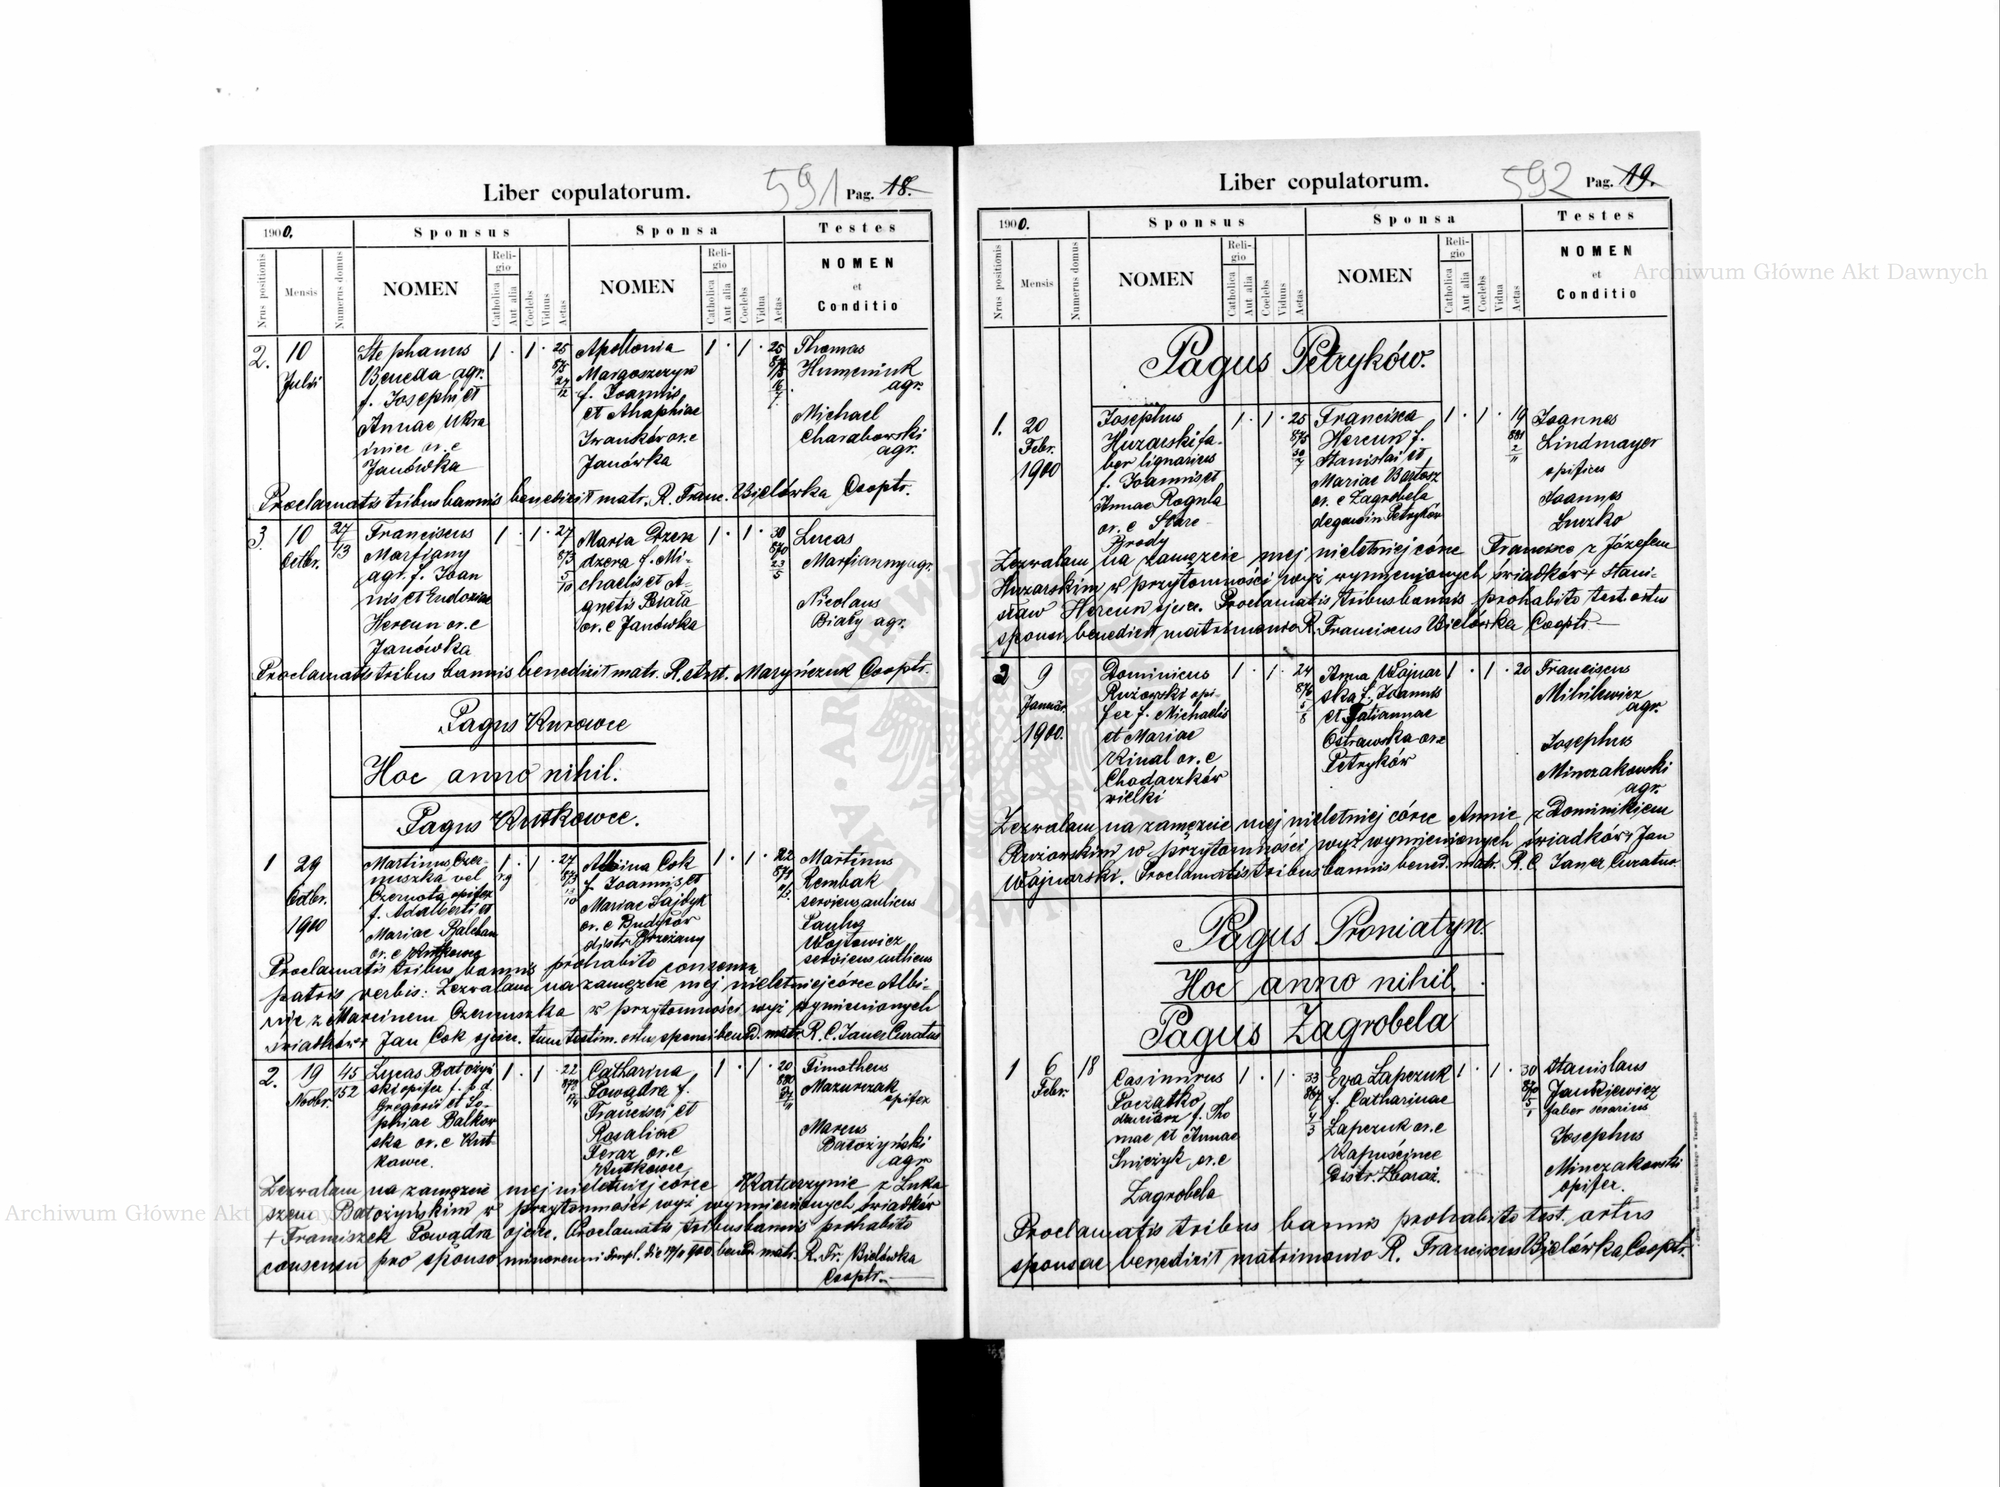 Liber copulatorum.
591
Pag. 18.
1900.
Sponsus
Sponsa
Testes
Nrus positionis
Mensis
Numerus domus
NOMEN
Religio
Catholica
Aut alia
Coelebs
Viduus
Aetas
NOMEN
Religio
Catholica
Aut alia
Coelebs
Vidua
Aetas
NOMEN
et
Conditio
2.
10
Julii
Stephanus
Beneda agr.
f. Josephi et
Annae Ukra
iniec or. e
Janówka
1 . 1 . 25
Apollonia
Margoszczyn
f. Joannis
et Ahaphiae
Iwanków or. e
Janówka
1 . 1 . 25
Thomas
Humeniuk
agr.
Michael
Charabowski
agr.
Proclamatis tribus bannis benedixit matr. R. Franc. Bielówka Cooptr.
3.
10
Octbr.
27
43
Franciscus
Marfiany
agr. f. Joan
nis et Eudoxiae
Hercun or. e
Janówka
1 . 1 . 27
873
5
10
Maria Dzen
dzera f. Mi-
chaelis et A-
gnetis Biała
or. e Janówka
1 . 1 . 30
870
23
5
Lucas
Marfianny agr.
Nicolaus
Biały agr.
Proclamatis tribus bannis benedixit matr. R. Ant. Maryńczuk Cooptr.
Pagus Kurowce
Hoc anno nihil.
Pagus Kutkowce.
1
29
Octbr.
1900
Martinus Czer-
muszka vel
Czernota opifex
f. Adalberti et
Mariae Balaban
or. e Kutkowce
1 . 1 . 27
Albina Cok
f. Joannis et
Mariae Sajdyk
or. e Budyłów
distr. Brzeżany
1 . 1 . 22
Martinus
Rembak
serviens aulicus
Paulus
Wojtowicz
serviens aulicus
Proclamatis tribus bannis prohabito consensu
patris verbis: Zezwalam na zamęźcie mej nieletniej córce Albi-
nie z Marcinem Czermuszka w przytomności wyż wymienionych
świadków Jan Cok ojciec. tum testim. ortus sponsi bened. matr. R. C. Janer Curatus
2.
19
Novbr.
45
152
Lucas Batożyń
ski opifex f. p. d.
Gregorii et So-
phiae Balkow
ska or. e Kut
kowce.
1 . 1 . 22
Catharina
Powądra f.
Francisci et
Rosaliae
Feraz or. e
Kutkowce
1 . 1 . 20
880
27
11
Timotheus
Mazurczak
opifex
Marcus
Batożyński
agr.
Zezwalam na zamęzcie mej nieletniej córce Katarzynie z Łuka
szem Batożyńskim w przytomności wyż wymienionych świadków
+ Franciszek Powądra ojciec. Proclamatis tribus bannis prohabito
consensu pro sponso minorenni bened. matr. R. Fr. Bielówka
Cooptr.
Liber copulatorum.
592
Pag. 19.
1900.
Sponsus
Sponsa
Testes
Nrus positionis
Mensis
Numerus domus
NOMEN
Religio
Catholica
Aut alia
Coelebs
Viduus
Aetas
NOMEN
Religio
Catholica
Aut alia
Coelebs
Vidua
Aetas
NOMEN
et
Conditio
Pagus Petryków.
1.
20
Febr.
1900
Josephus
Huzarski fa-
ber lignarius
f. Joannis et
Annae Rogula
or. e Stare-
Brody
1 . 1 . 25
875
30
7
Francisca
Hercun f.
Stanislai et
Mariae Bartosz
or. e Zagrobela
degaw in Petryków
1 . 1 . 19
881
2
11
Joannes
Lindmayer
opificus
Joannes
Luzko
Zezwalam na zamęzcie mej nieletniej córce Francisce z Józefem
Huzarskim w przytomności wyż wymienionych świadków + Stani-
sław Hercun ojciec. Proclamatis tribus bannis prohabito test. ortus
sponsi benedixit matrimonio R. Franciscus Bielówka Cooptr.
2
9
Januar.
1900.
Dominicus
Rużowski opi-
fex f. Michaelis
et Mariae
Kinal or. e
Chodaczków
wielki
1 . 1 . 24
876
5
8
Anna Wojnar
ska f. Joannis
et Tatiannae
Ostrowska or. e
Petryków
1 . 1 . 20
Franciscus
Milnikiewicz
agr.
Josephus
Minczakowski
agr.
Zezwalam na zamęzcie mej nieletniej córce Annie z Dominikiem
Rużowskim w przytomności wyż wymienionych świadków Jan
Wojnarski. Proclamatis tribus bannis bened. matr. R. C. Janer Curatus
Pagus Proniatyn.
Hoc anno nihil.
Pagus Zagrobela
1
6
Febr.
18
Casimirus
Początko
f. Tho
mae et Annae
Śnieżyk or. e
Zagrobela
1 . 1 . 33
867
4
3
Eva Łapczuk
f. Catharinae
Łapczuk or. e
Kapuścince
Distr. Zbaraż.
1 . 1 . 30
870
5
1
Stanislaus
Jankiewicz
faber serarius
Josephus
Minczakowski
opifex.
Proclamatis tribus bannis prohabito test. ortus
sponsae benedixit matrimonio R. Franciscus Bielówka Cooptr.
Archiwum Główne Akt Dawnych
Archiwum Główne Akt Dawnych